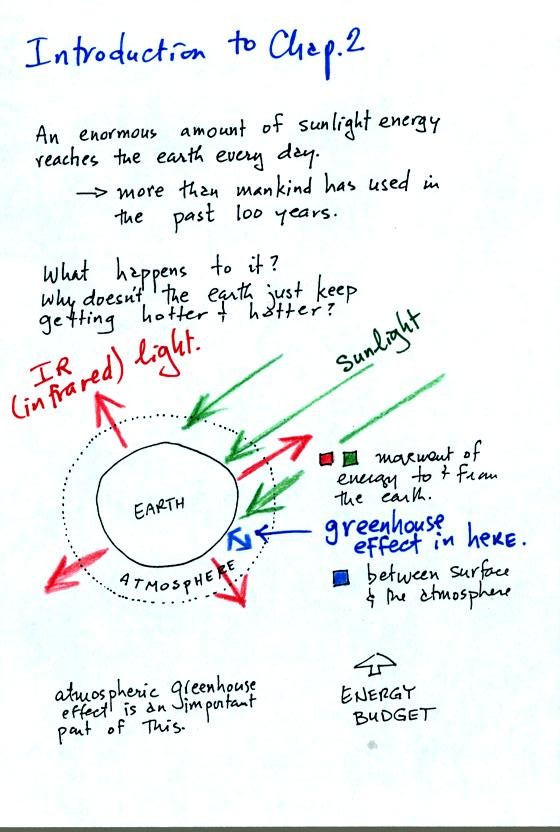 Introduction to Chap. 2
An enormous amount of sunlight energy
reaches the earth every day.
→ more than mankind has used in
the past 100 years.
What happens to it?
Why doesn't the earth just keep
getting hotter & hotter?
IR
(infrared) light.
sunlight
EARTH
ATMOSPHERE
movement of
energy to & from
the earth.
greenhouse
effect in here.
between surface
& the atmosphere
atmospheric greenhouse
effect is an important
part of This.
ENERGY
BUDGET